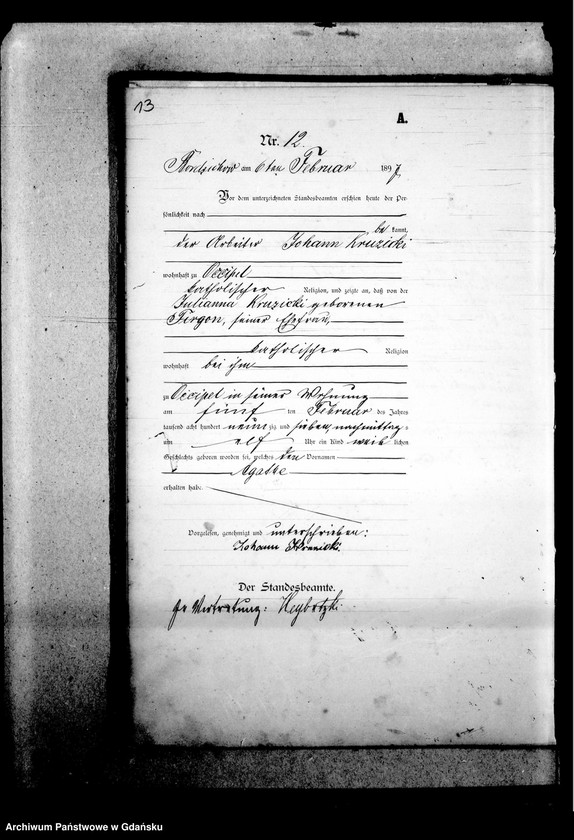 13
A.
Nr. 12.
am 6ten Februar 1897
Vor dem unterzeichneten Standesbeamten erschien heute der Per-
sönlichkeit nach
be kannt,
der Arbeiter Johann Kruzicki
wohnhaft zu Occipel
katholischer Religion, und zeigte an, daß von der
Julianna Kruzicki geborenen
Firgon, seiner Ehefrau,
katholischer Religion
wohnhaft bei ihm
zu Occipel in seiner Wohnung
am fünf ten Februar des Jahres
tausend acht hundert neun zig und sieben, nachmittag s
um elf Uhr ein Kind weib lichen
Geschlechts geboren worden sei, welches den Vornamen
Agathe
erhalten habe.
Vorgelesen, genehmigt und unterschrieben:
Johann
Der Standesbeamte.
In Vertretung:
Archiwum Państwowe w Gdańsku